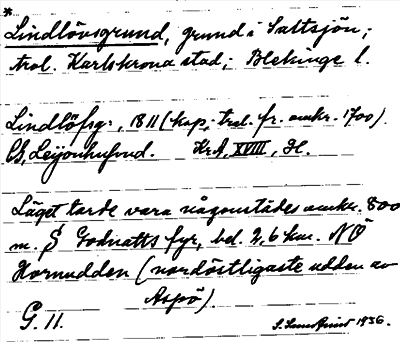 *
Lindlövsgrund, grund i Saltsjön;
trol. Karlskrona stad; Blekinge l.
Lindlöfsg:, 1811 (kop; trol. fr. omkr. 1700).
CG, Leijonhufvud. KrA, XVIII, H.
Läget torde vara någonstädes omkr. 800
m. S Godnatts fyr, bel. 2,6 km. NÖ
Hornudden (nordöstligaste udden av
Aspö).
G. 11. 1936.